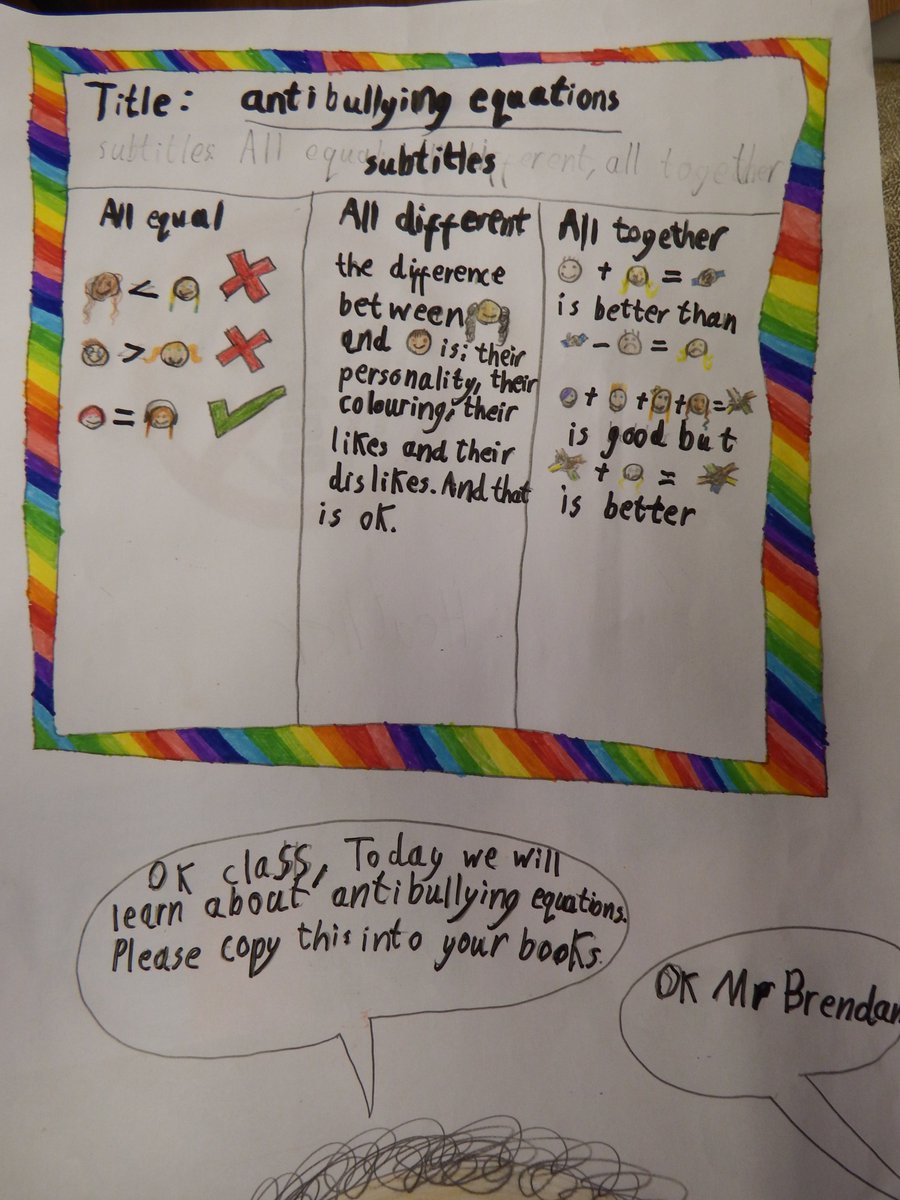 Title: antibullying equations
subtitles All equal different, all together
subtitles
All equal
<
>
=
All different
the difference
between
and is: their
personality, their
colouring, their
likes and their
dislikes. And that
is ok.
All together
+ =
is better than
- =
+ + + =
is good but
+ =
is better
OK class, Today we will
learn about antibullying equations.
Please copy this into your books.
OK Mr Brendan